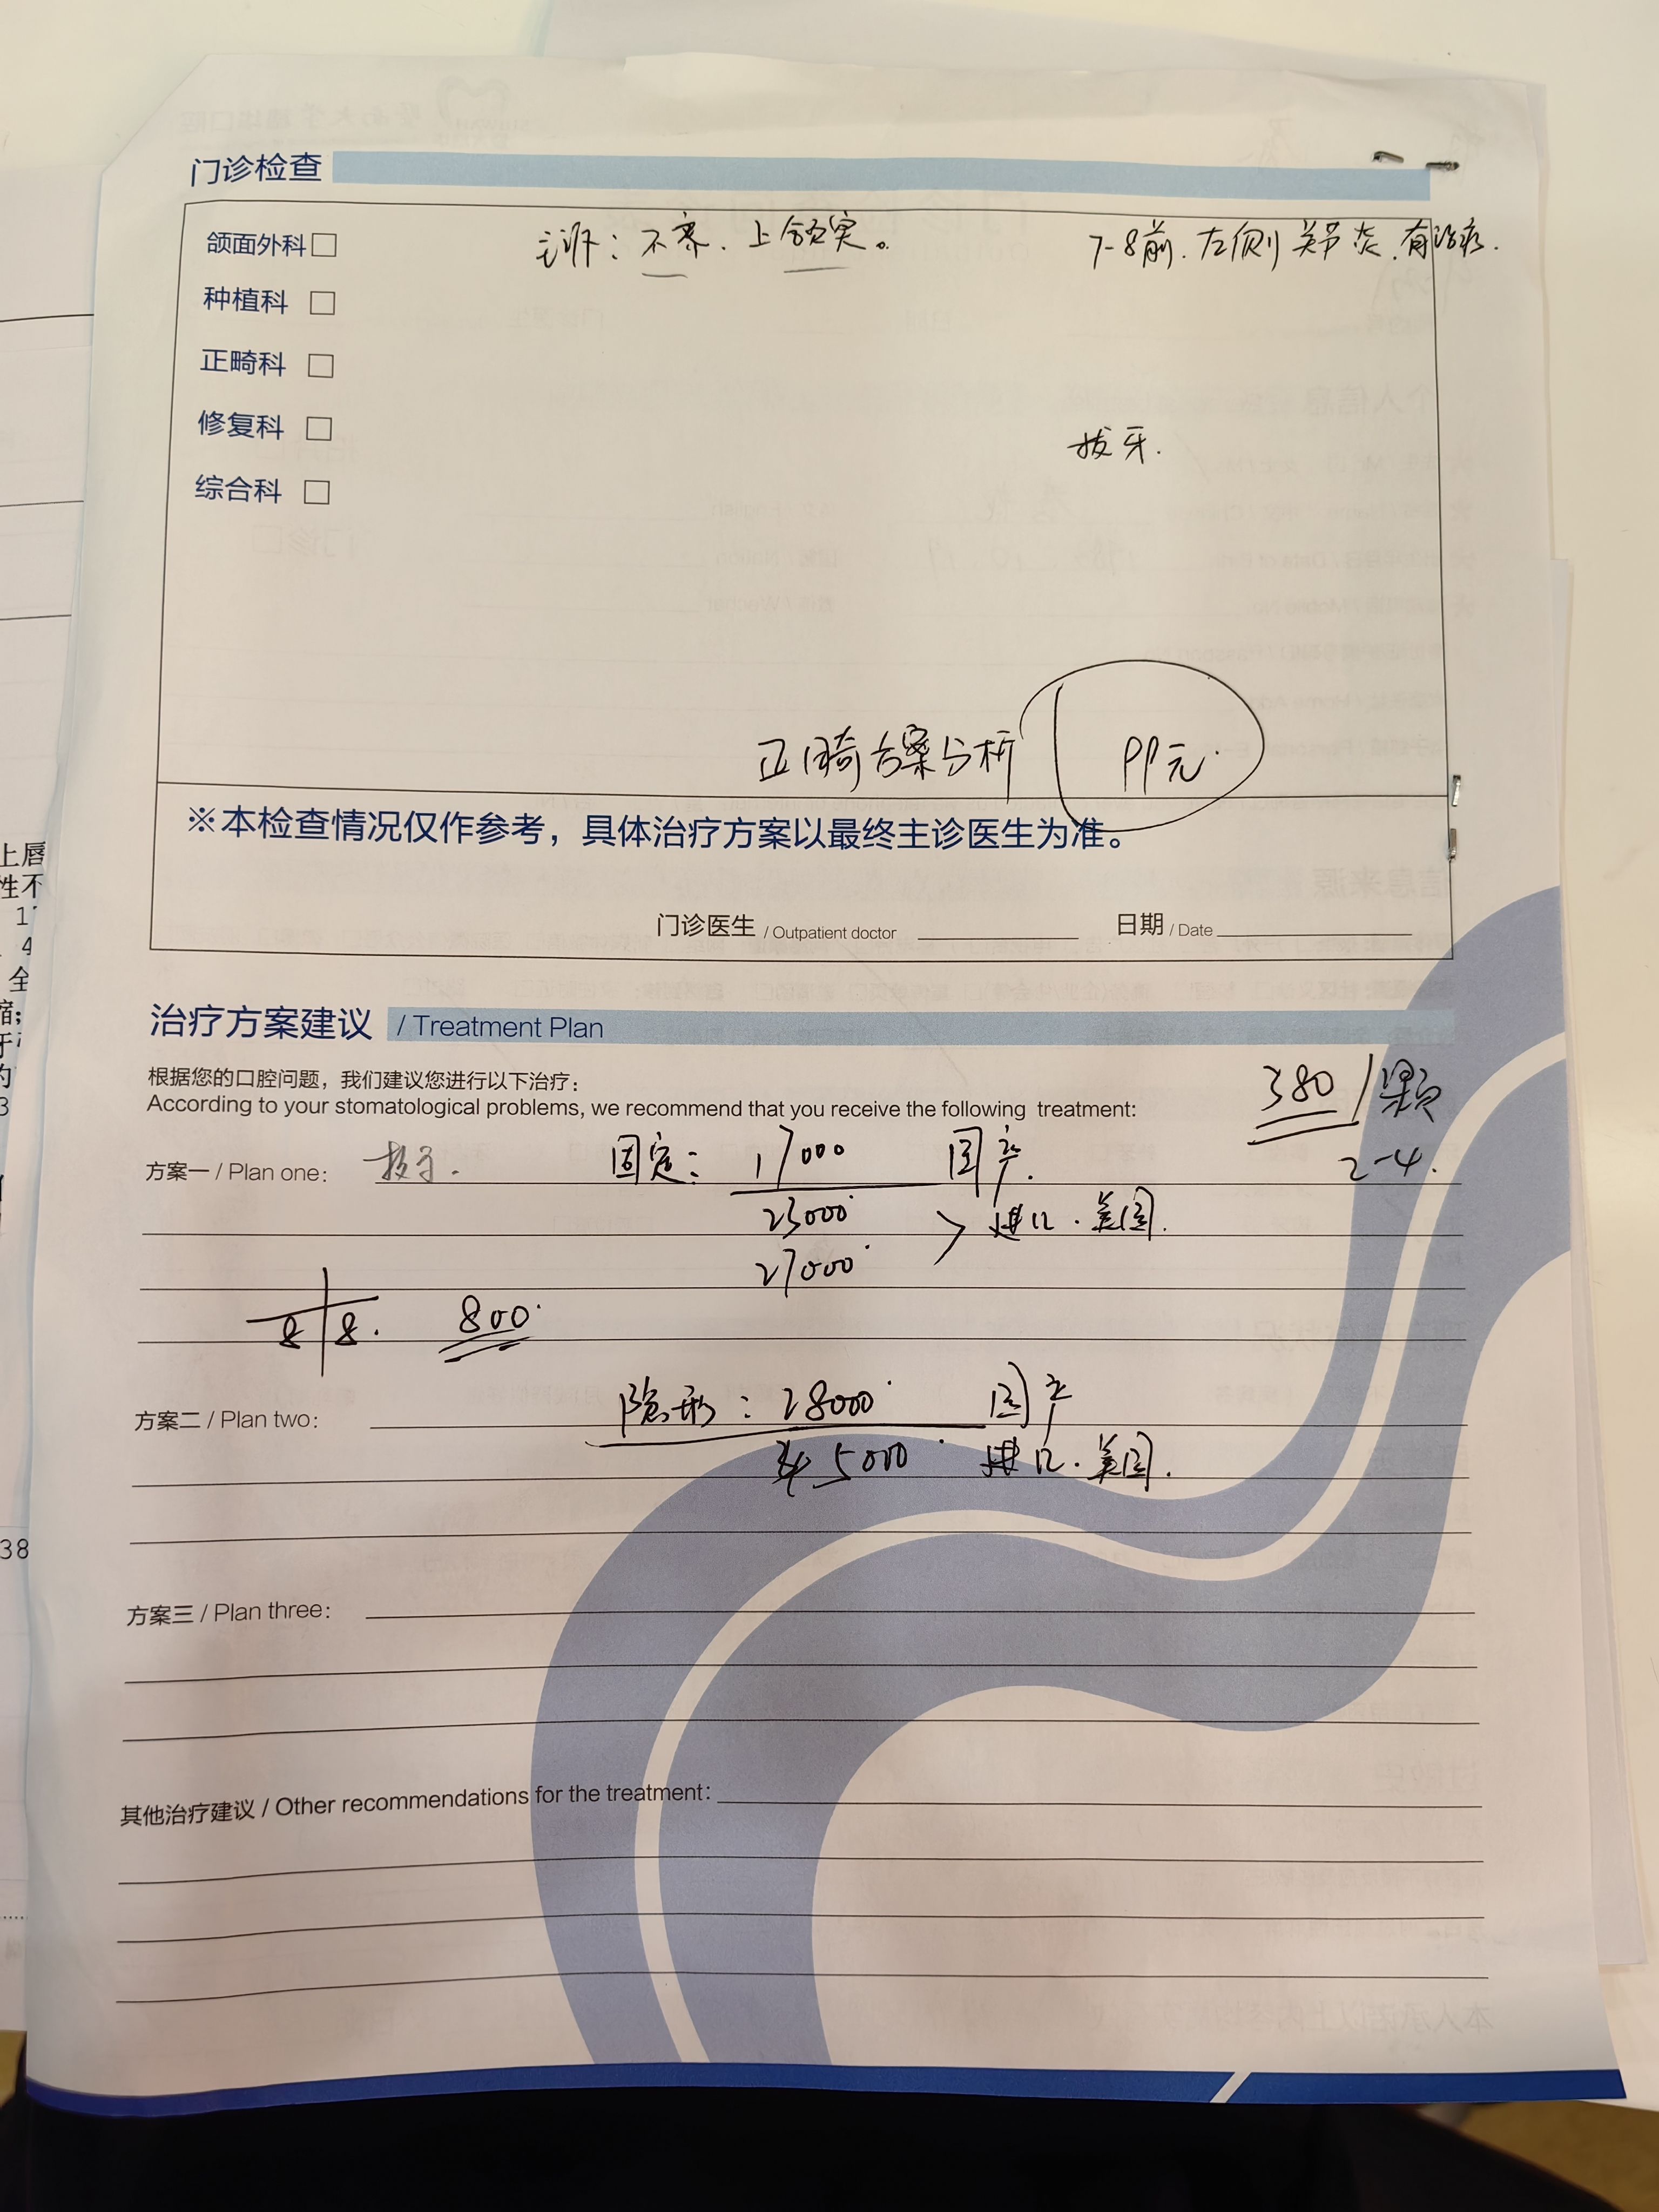 门诊检查
颌面外科□
主诉：不齐、上颌突。
7-8前. 左侧关节炎. 有治疗.
种植科 □
正畸科 □
修复科 □
拔牙.
综合科 □
正畸方案分析 99元.
※本检查情况仅作参考，具体治疗方案以最终主诊医生为准。
门诊医生 / Outpatient doctor
日期 / Date
治疗方案建议 / Treatment Plan
根据您的口腔问题，我们建议您进行以下治疗：
According to your stomatological problems, we recommend that you receive the following treatment:
380/颗
2-4.
方案一 / Plan one: 拔牙. 固定: 17000 国产.
23000 进口. 美国.
27000
8 8. 800.
方案二 / Plan two: 隐形: 28000 国产
45000 进口. 美国.
方案三 / Plan three:
其他治疗建议 / Other recommendations for the treatment:
上唇
性不
全
38